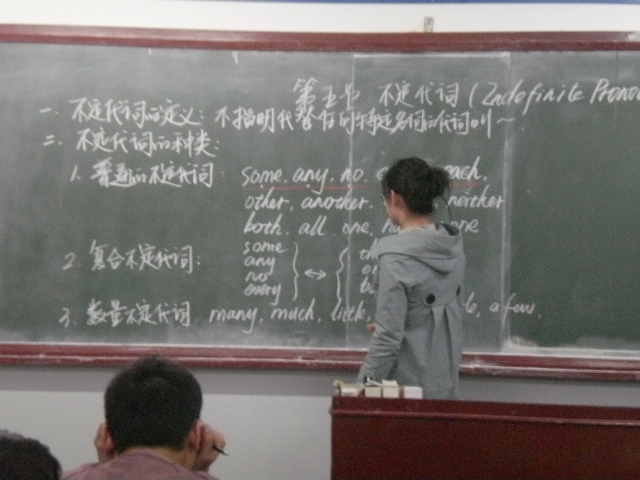 第五节 不定代词 (Indefinite Pronou
一、不定代词的定义：不指明代替任何特定名词的代词叫~
二、不定代词的种类：
1. 普通的不定代词：some, any, no, each,
other, another, neither
both, all, one, none
2. 复合不定代词：
some
any
no
every
3. 数量不定代词 many, much, little, a few.